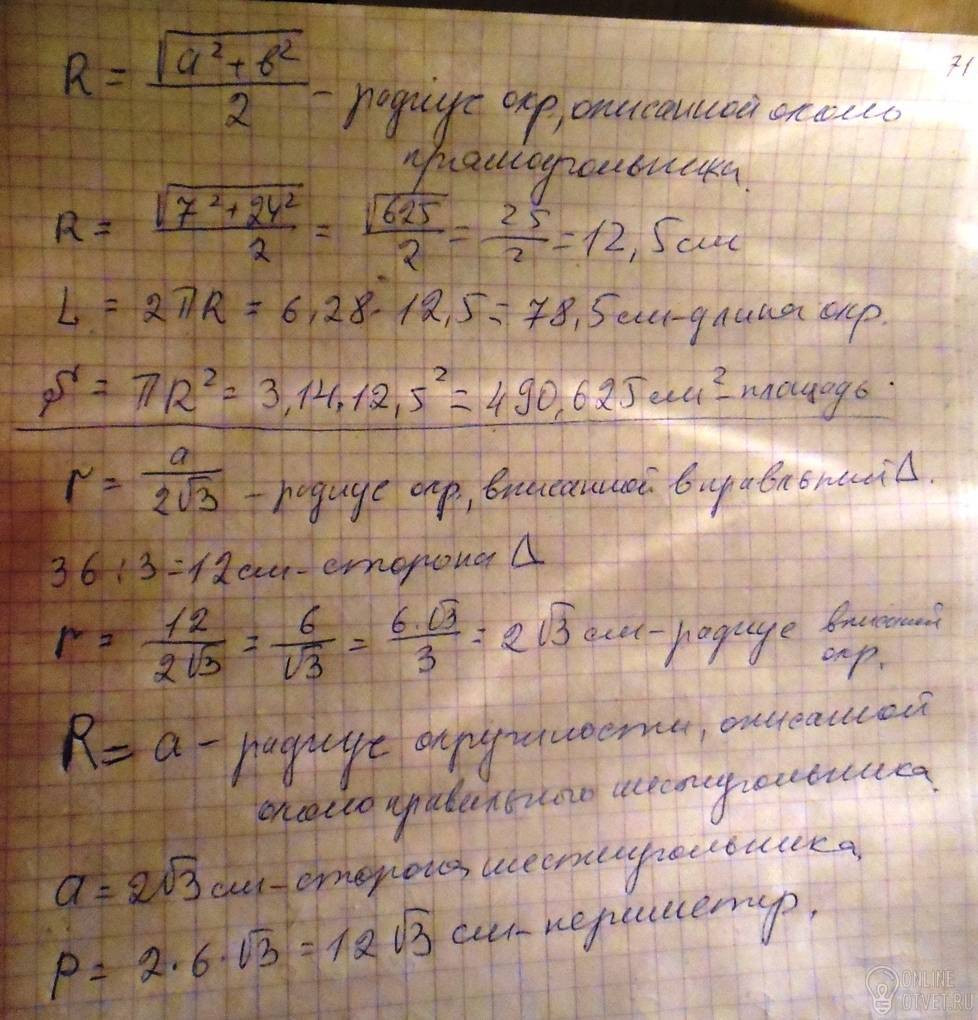 71
R = √(a² + в²) / 2 - радиус окр., описанной около
прямоугольника.
R = √(7² + 24²) / 2 = √625 / 2 = 25 / 2 = 12,5 см
L = 2πR = 6,28 · 12,5 = 78,5 см - длина окр.
S = πR² = 3,14 · 12,5² = 490,625 см² - площадь.
r = a / 2√3 - радиус окр., вписанной в правильный Δ.
36 : 3 = 12 см - сторона Δ
r = 12 / 2√3 = 6 / √3 = 6 · √3 / 3 = 2√3 см - радиус вписаной окр.
R = a - радиус окружности, описаной
около правильного шестиугольника.
a = 2√3 см - сторона шестиугольника
p = 2 · 6 · √3 = 12√3 см - периметр.
ONLINE
OTVET.RU